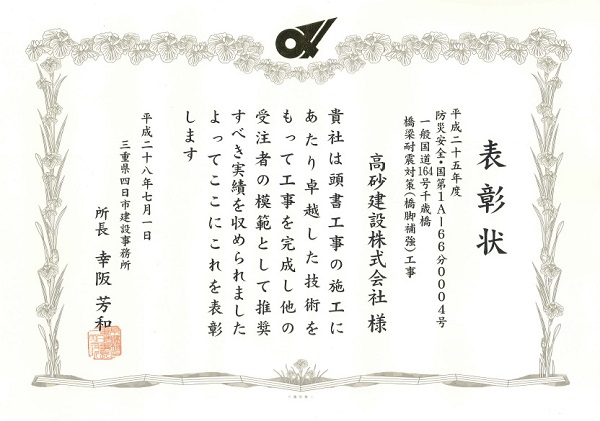 表彰状
平成二十五年度
防災安全・国第1A-66分0004号
一般国道164号千歳橋
橋梁耐震対策(橋脚補強)工事
高砂建設株式会社 様
貴社は頭書工事の施工に
あたり卓越した技術を
もって工事を完成し他の
受注者の模範として推奨
すべき実績を収められました
よってここにこれを表彰
します
平成二十八年七月一日
三重県四日市建設事務所
所長 幸阪 芳和